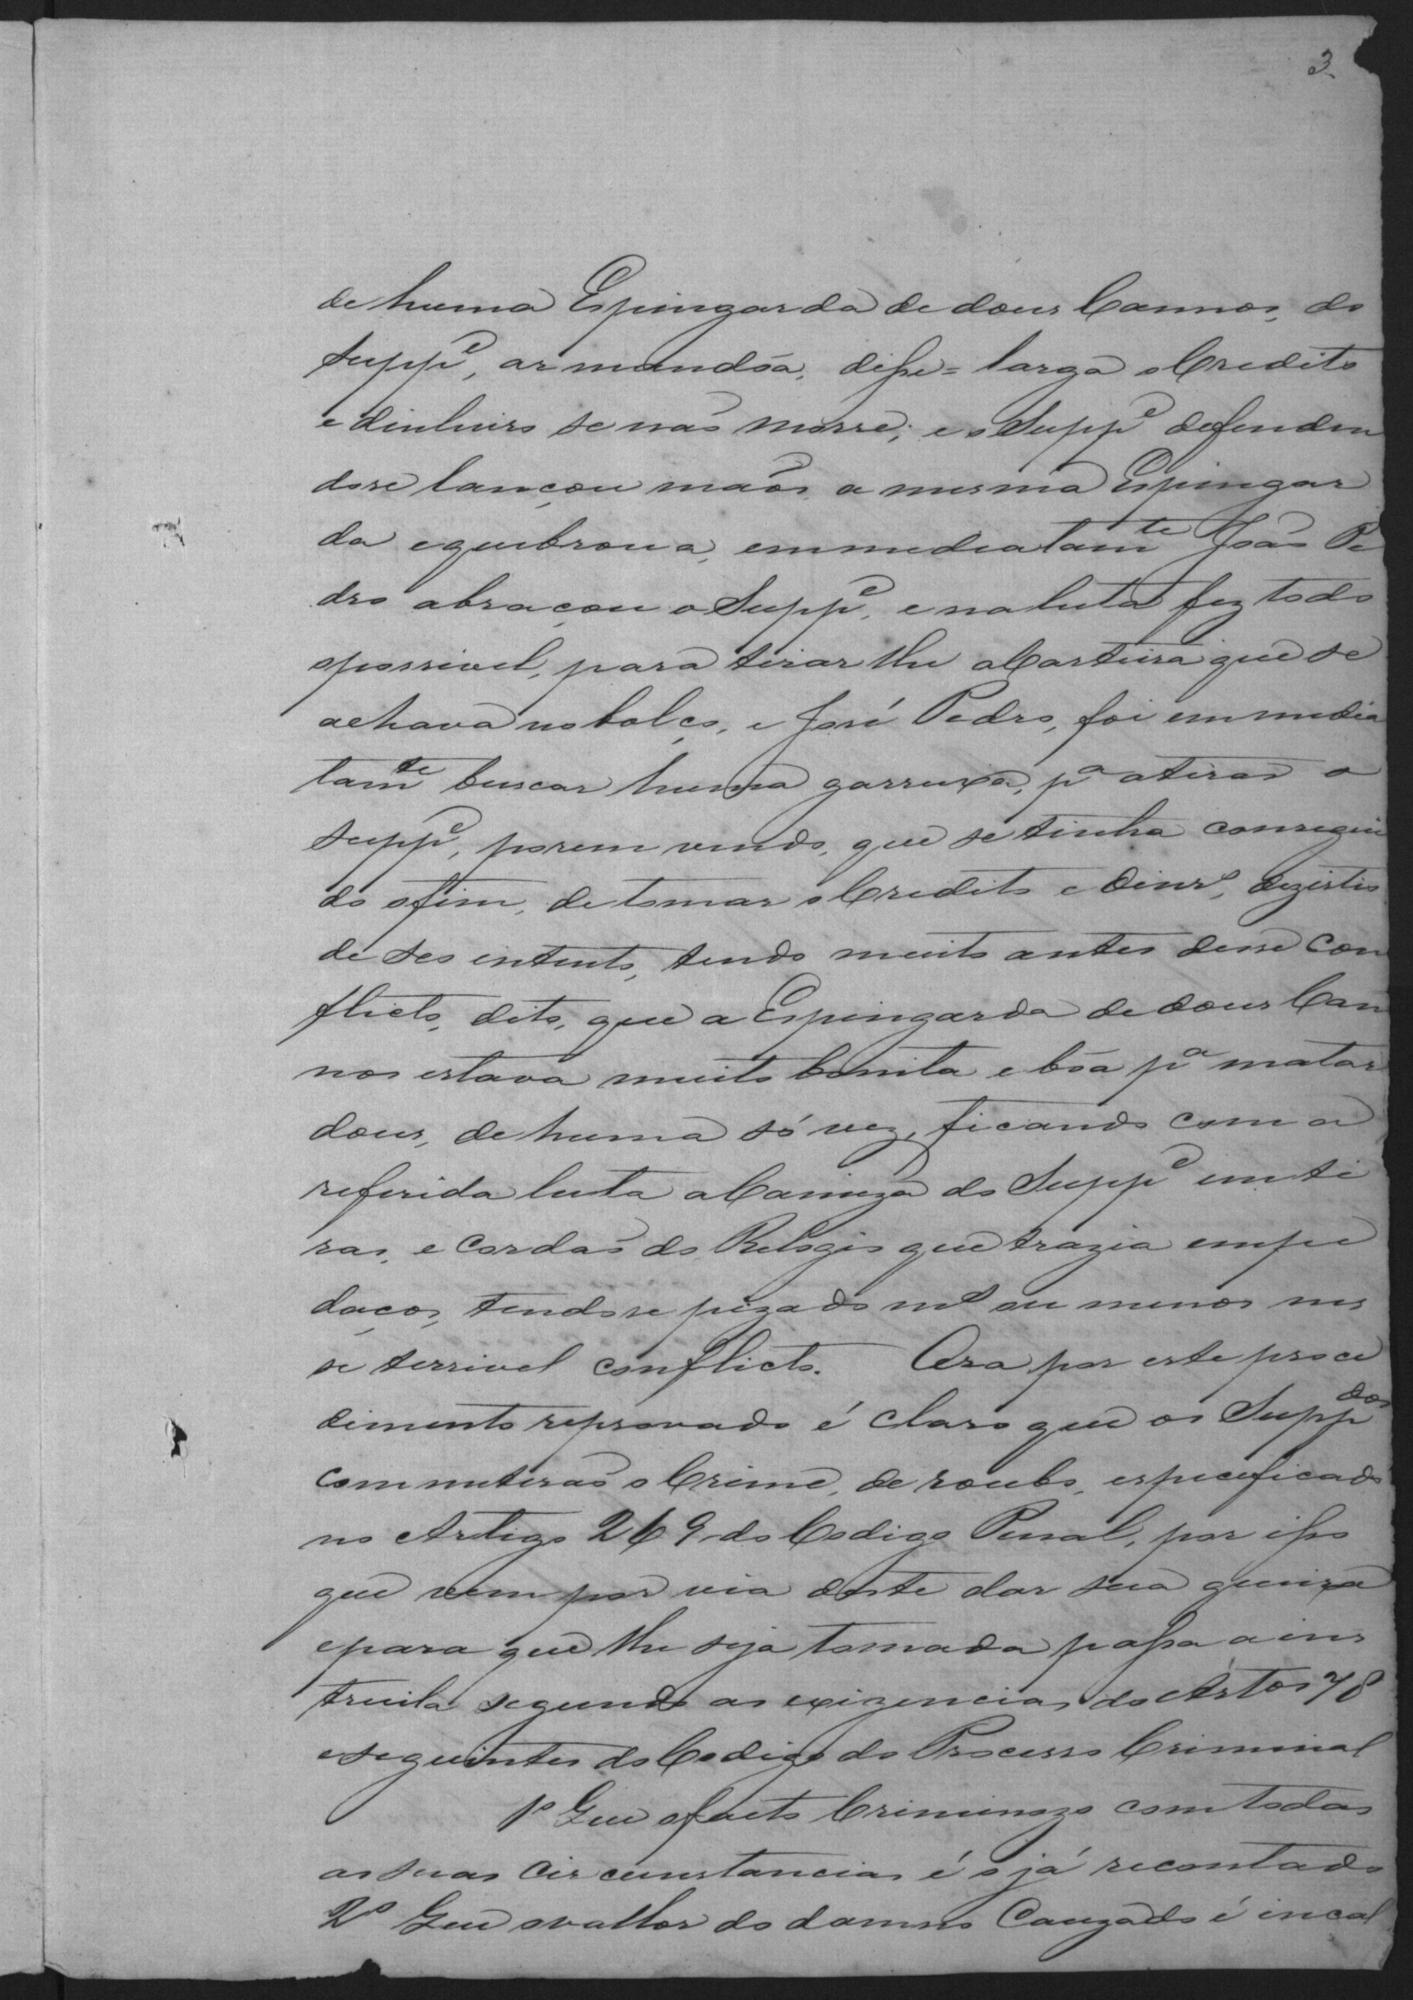 3
de huma Espingarda de dous Cannos, do
Supp.e, armandoa, disse = larga o Credito
e dinheiro se não morre; e o Supp.e defenden
dose lançou mãos a mesma Espingar
da equebroua, emmediatam.te João Pe
dro abraçou o Supp.e, e na luta fez todo
opossivel, para tirar lhe a Carteira que se
achava no bolço, e José Pedro, foi emmedia
tam.te buscar huma garruxa, p.a atirar o
Supp.e, porem vendo, que se tinha consegui
do ofim, de tomar o Credito e dinr.o, dezistio
de seo entento, tendo muito antes desse con
flicto, dito, que a Espingarda de dous Can
nos estava muito bonita e bôa p.a matar
dous, de huma só vez, ficando com a
referida luta a Camiza do Supp.e em ti
ras, e Cordão do Relogio que trazia em pe
daços, tendose pizado m.s ou menos nes
se terrivel conflicto. Ora por este proce
dimento reprovado é claro que os Supp.dos
commeterão o Crime, de roubo, especeficado
no Artigo 269 do Codigo Penal, por isso
que vem por via deste dar sua queixa
epara que lhe seja tomada passa a ins
truila segundo as exigencias do Artos 78
eseguintes do Codigo do Processo Criminal
1.o Que ofacto Criminozo com todas
as suas circunstancias é o já recontado
2.o Que ovallor do damno Cauzado é incal